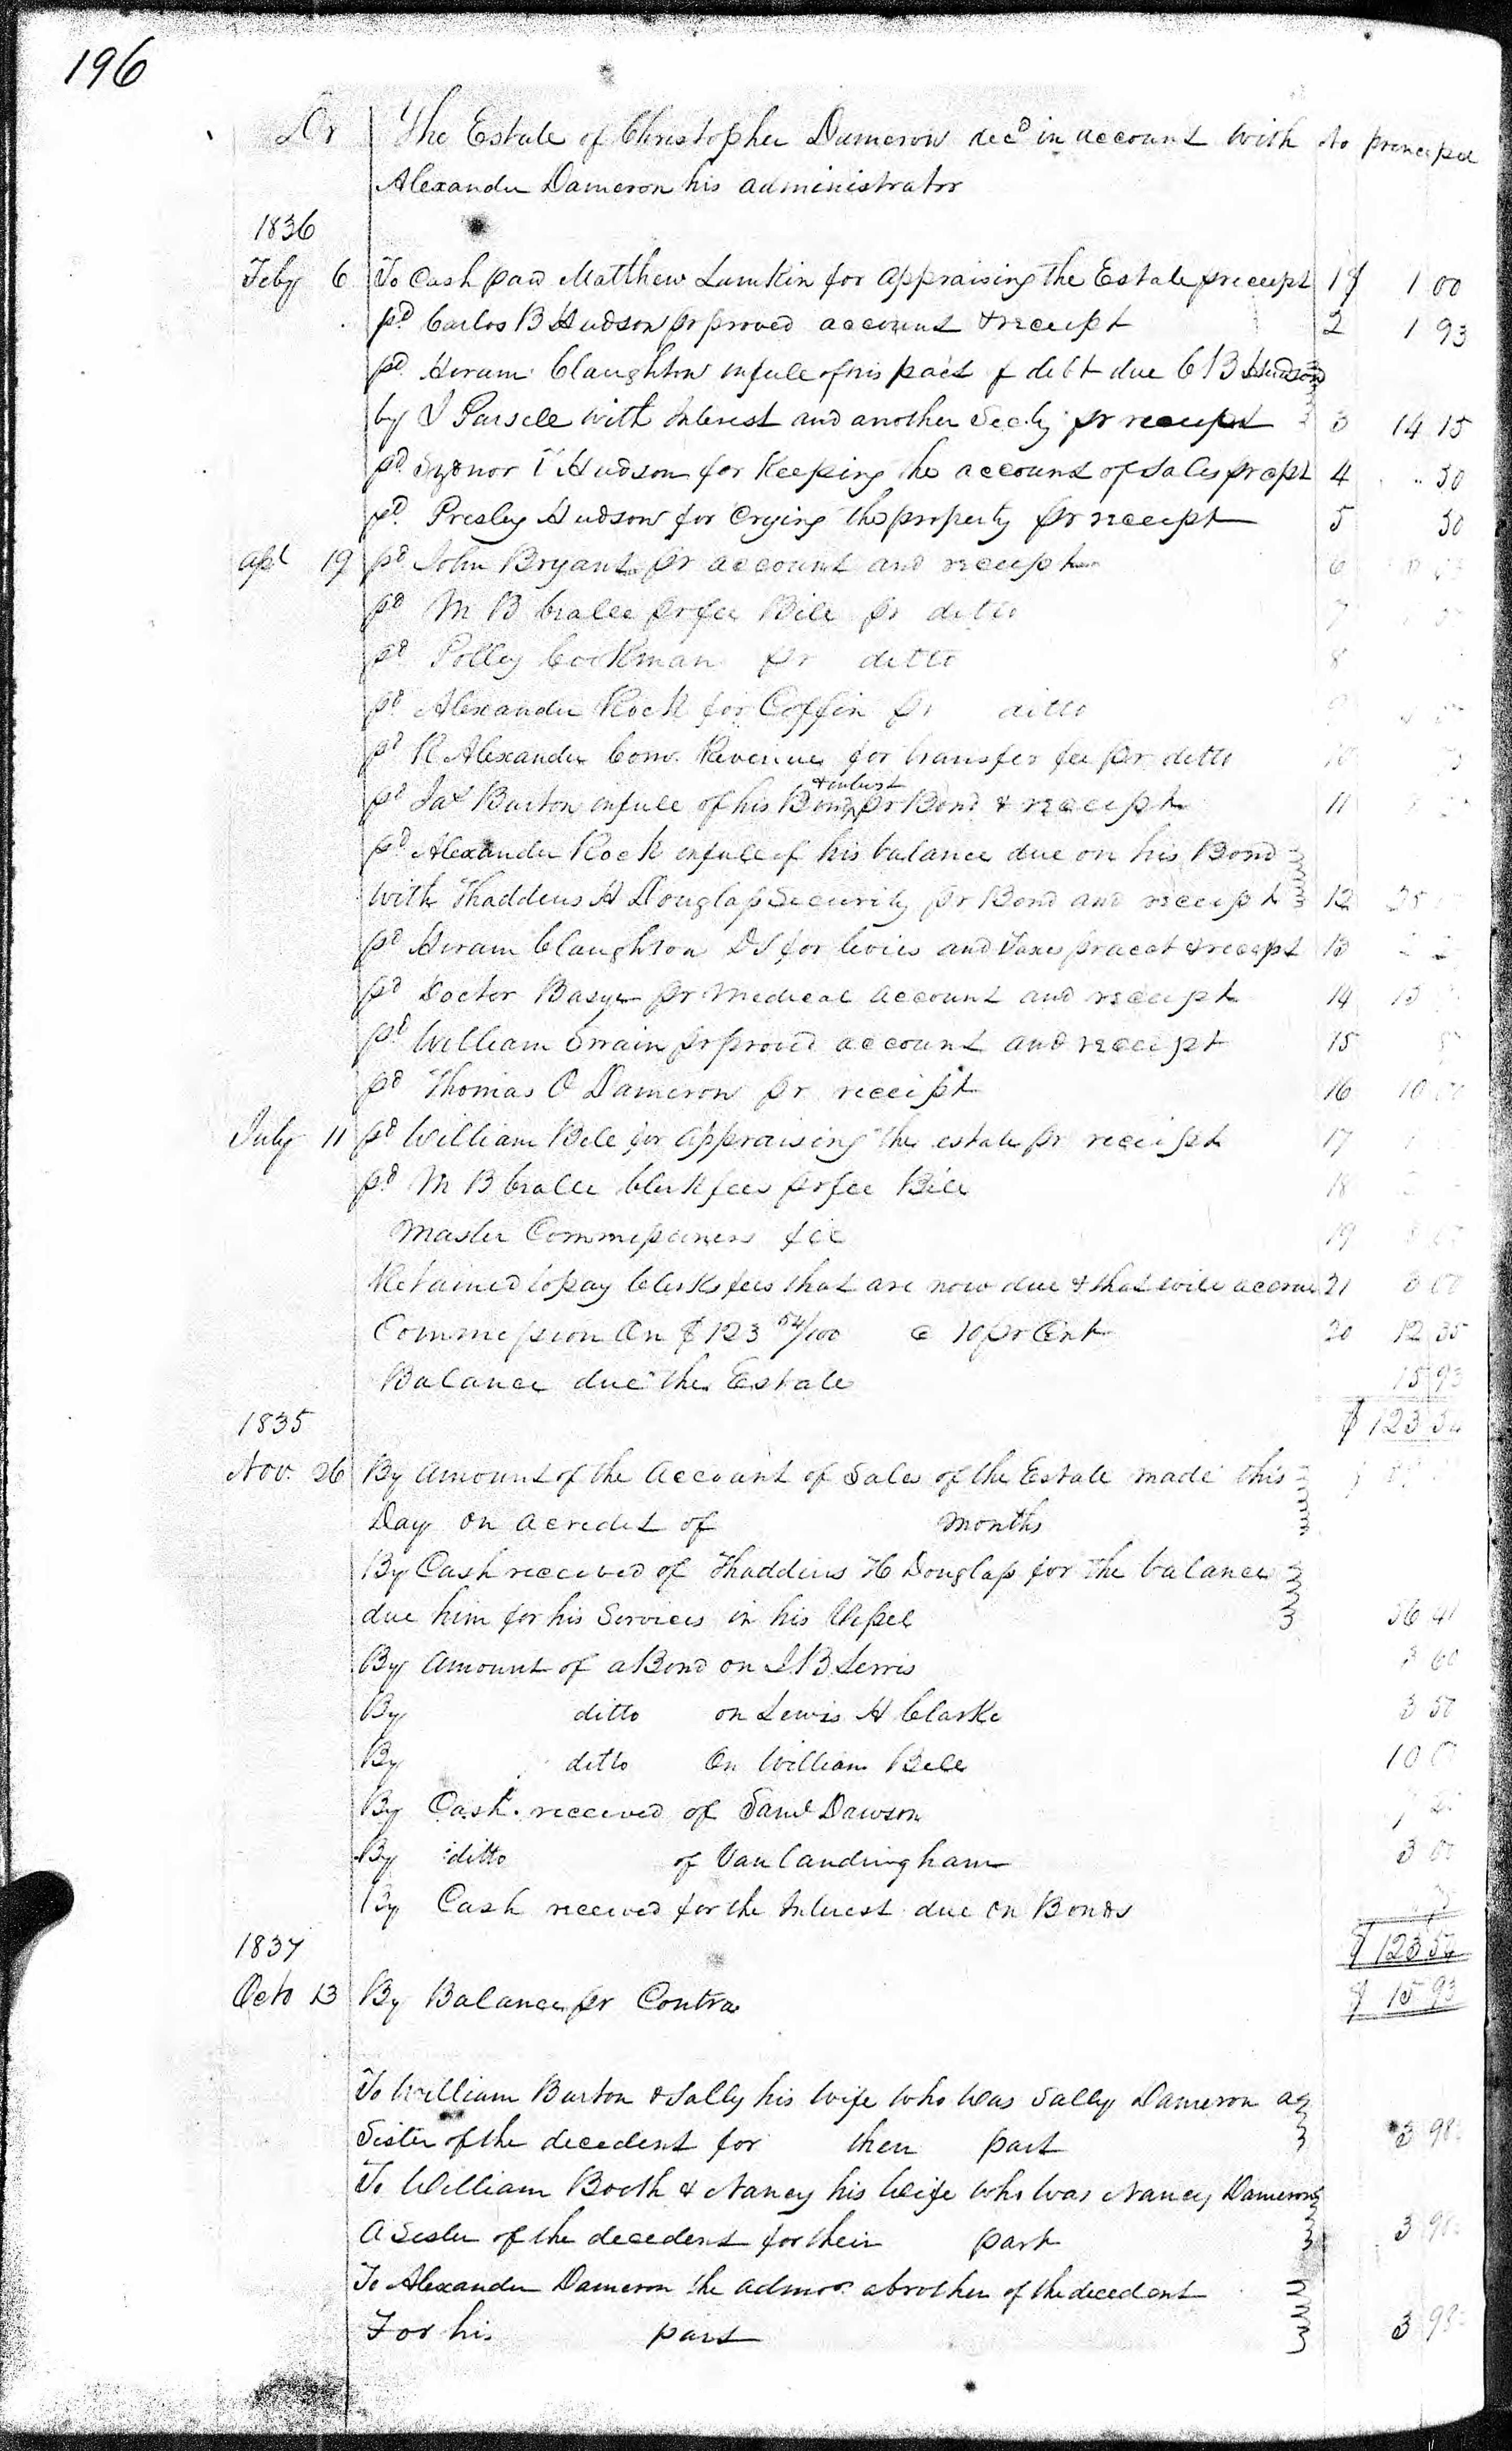 196
Dr The Estate of Christopher Dameron decd in account with No principal
Alexander Dameron his administrator
1836
Feby 6 To Cash paid Matthew Lamkin for appraising the Estate pr receipt 1 $ 1 00
pd Carlos B Hudson pr proved account & receipt 2 1 93
pd Hiram Claughton in full of his part of debt due C B Hudson
by Pursell with Interest and another Secty pr receipt 3 14 15
pd Sydnor Hudson for Keeping the account of Sales pr rcpt 4 50
pd Presley Hudson for Crying the property pr receipt 5 50
apl 19 pd John Bryant pr account and receipt 6
pd M B Cralle pr fee Bill pr ditto 7
pd Polley Cookman pr ditto 8
pd Alexander Rock for Coffin pr ditto 9
pd R Alexander Com. Revenue for transfer fee pr ditto 10
pd Jas Burton in full of his Bond & interest pr Bond & receipt 11
pd Alexander Rock in full of his balance due on his Bond
with Thaddeus H Douglass Security pr Bond and receipt 12 25
pd Hiram Claughton DS for levies and Taxes pr acct & receipt 13
pd Doctor Basye pr Medical account and receipt 14
pd William pr proved account and receipt 15
pd Thomas O Dameron pr receipt 16 10 00
July 11 pd William Bell for appraising the estate pr receipt 17
pd M B Cralle Clerk fees pr fee Bill 18
Master Commissioners fee 19
Retained to pay Clerks fees that are now due & that will accrue 21
Commission On $123 54/100 @ 10 pr Cent 20 12 35
Balance due the Estate 15 93
1835 $ 123 54
Nov. 26 By amount of the Account of Sales of the Estate made this
Day on a credit of months
By Cash received of Thaddeus H Douglass for the balance
due him for his Services in his Vessel 36 41
By amount of a Bond on B Lewis 60
By ditto on Lewis H Clarke 3 50
By ditto On William Bell 10
By Cash received of Saml Dawson
By ditto of Vanlandingham 3 00
By Cash received for the Interest due on Bonds
1837 $ 123 54
Octo 13 By Balance pr Contra $ 15 93
To William Burton & Sally his wife who was Sally Dameron a
Sister of the decedent for their part 3 98
To William Booth & Nancy his Wife who was Nancy Dameron
A Sister of the decedent for their part 3 98
To Alexander Dameron the admor. a brother of the decedent
For his part 3 98